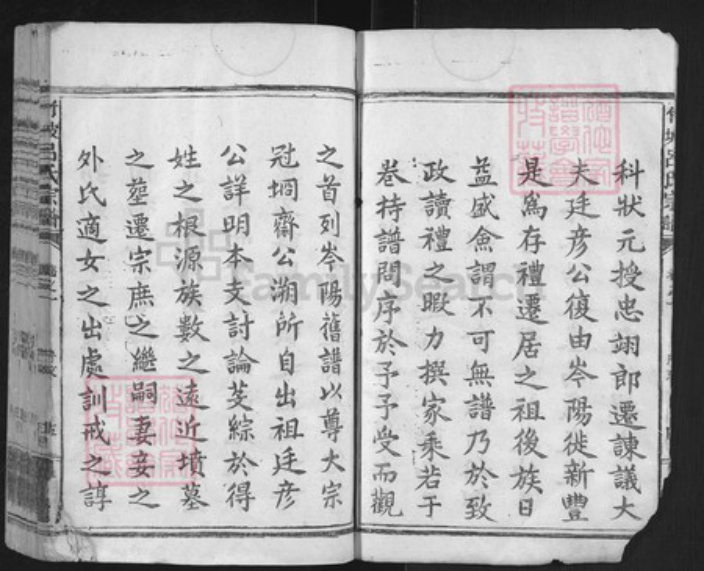 科狀元授忠翊郎遷諫議大
夫廷彦公復由岑陽徙新豐
是爲存禮遷居之祖後族日
益盛僉謂不可無譜乃於致
政讀禮之暇力撰家乘若干
卷持譜問序於予予受而觀
之首列岑陽舊譜以尊大宗
冠坰齋公溯所自出祖廷彦
公詳明本支討論芟綜於得
姓之根源族數之遠近墳墓
之塋遷宗庶之繼嗣妻妾之
外氏適女之出處訓戒之諄
呂氏宗譜
FamilySearch